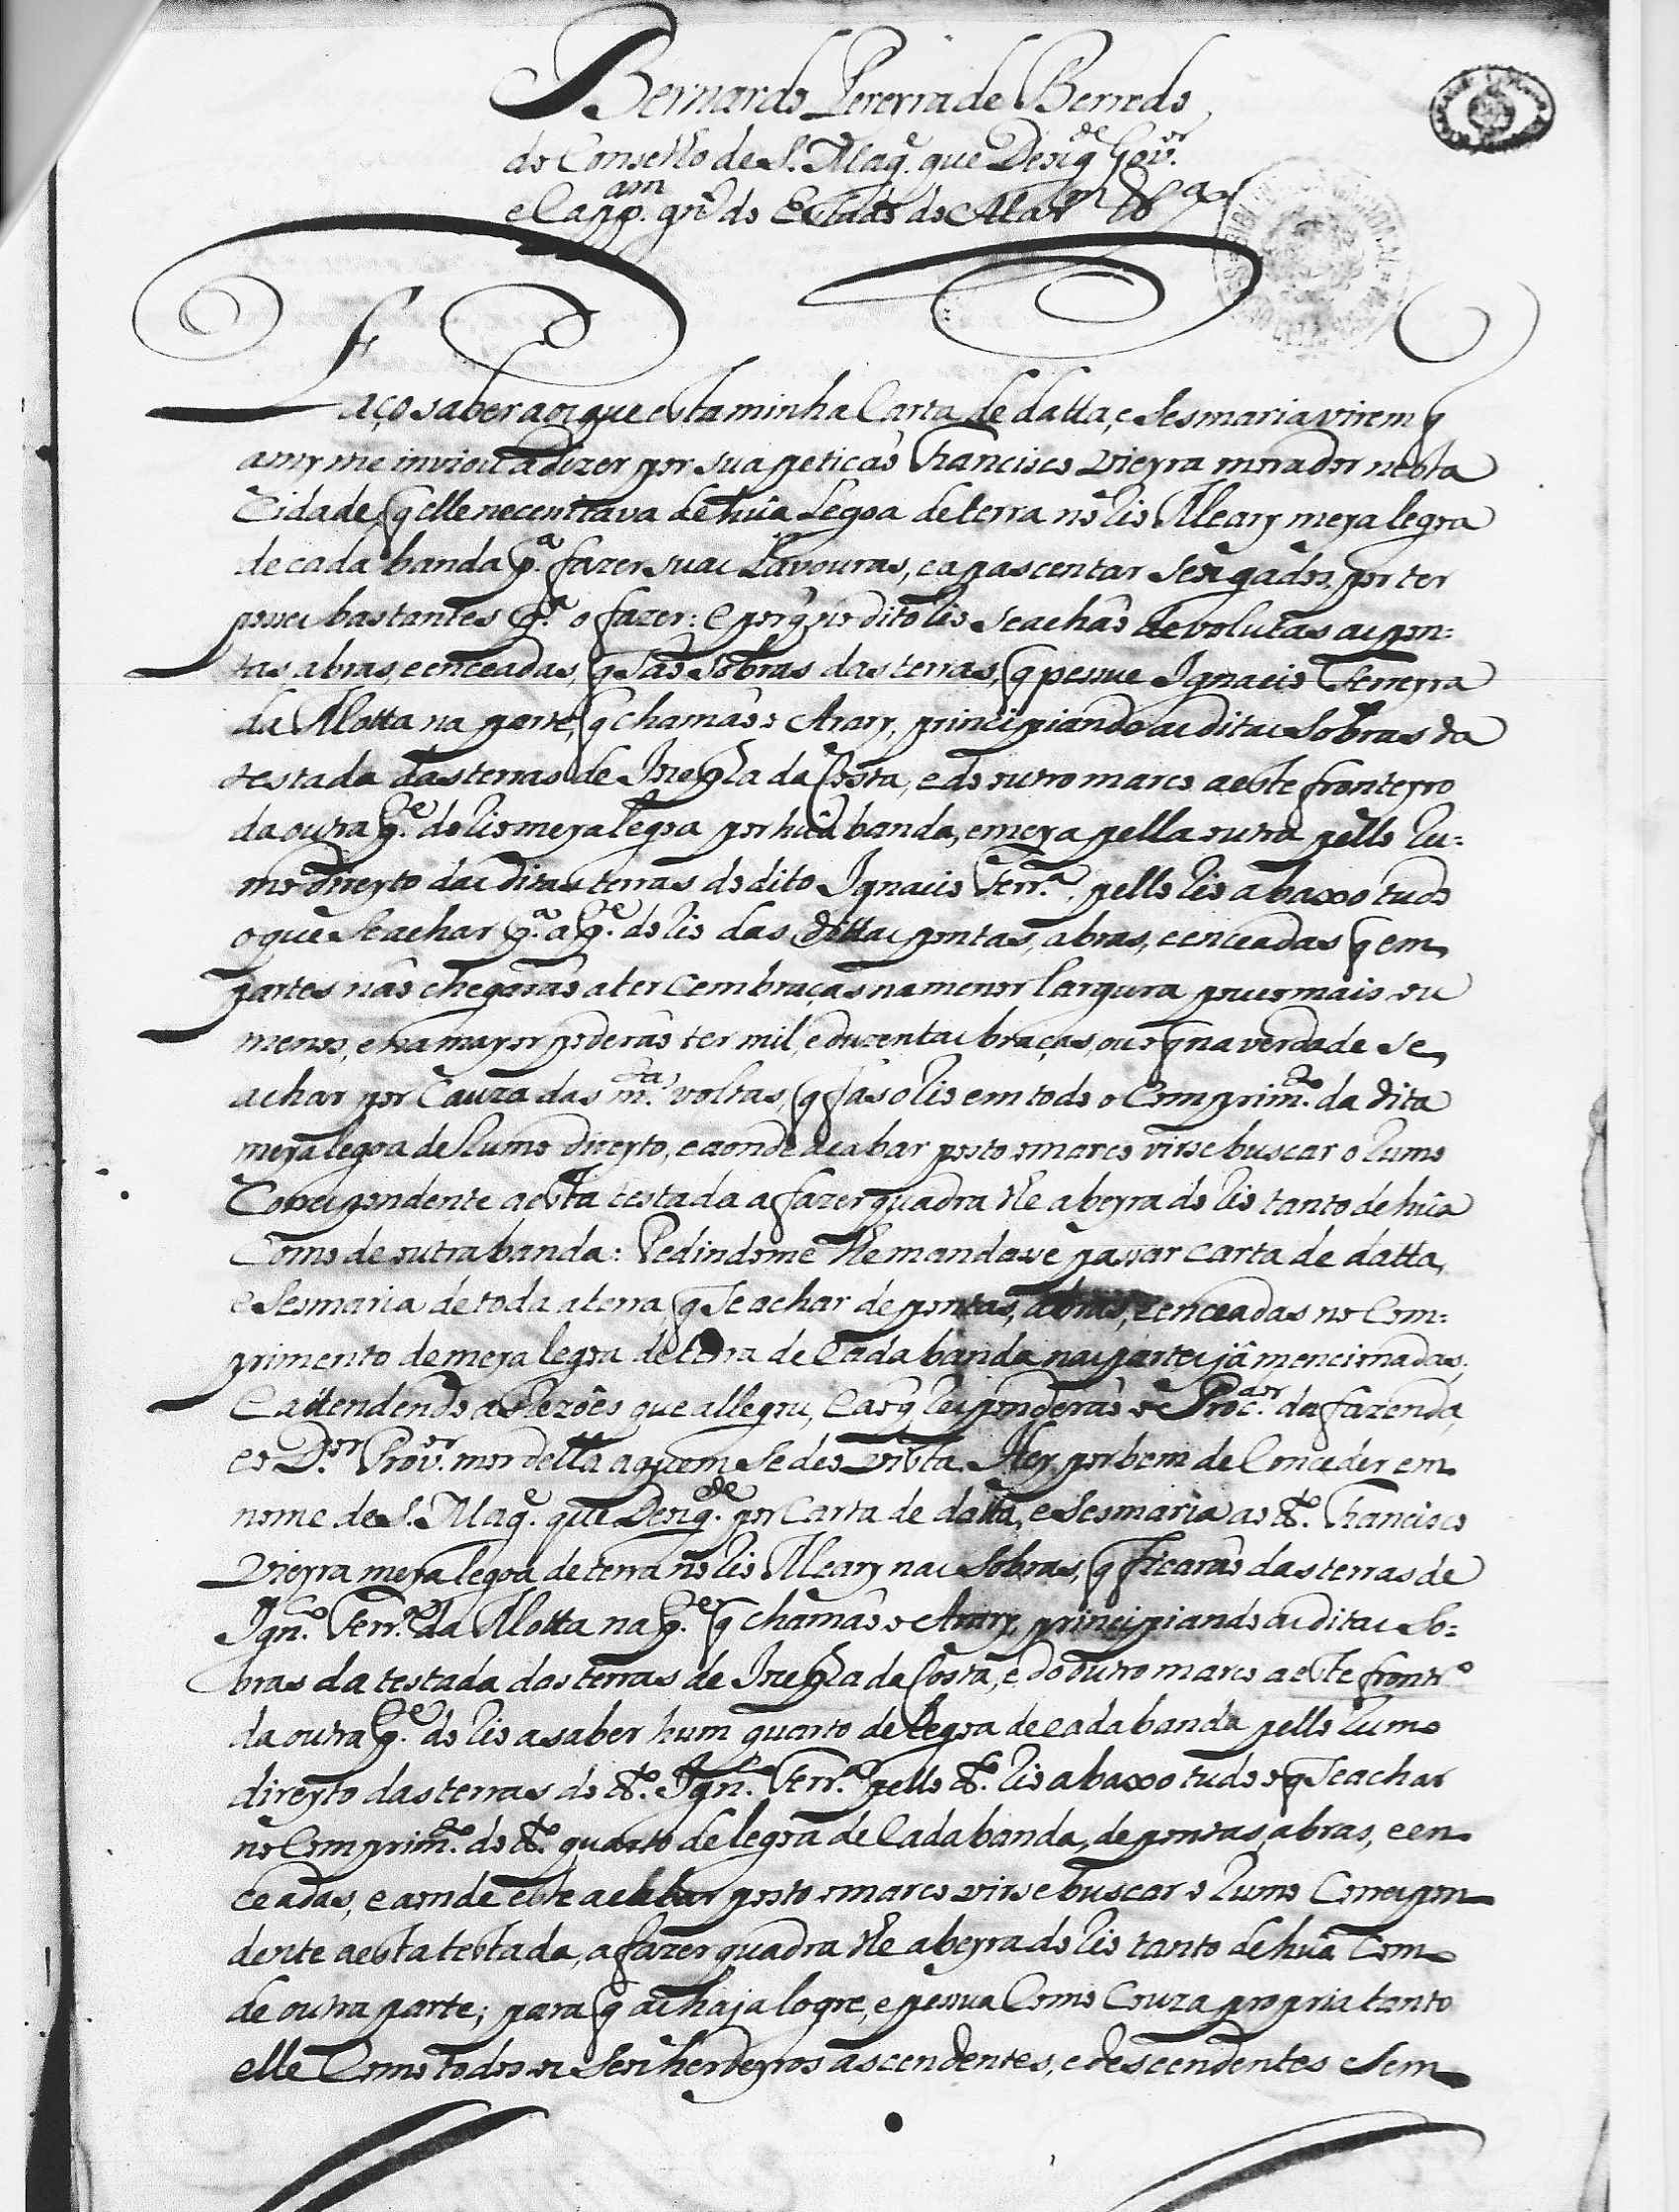 Bernardo Pereyra de Berredo
do Conselho de S. Magᵉ. que Deos gᵈᵉ Govᵒʳ.
e Cappᵃᵐ. gnˡ do Estado do Marᵐ &ᵃ
Faço saber aos que esta minha Carta de datta, e Sesmaria virem q̃
a my me inviou a dizer por sua petição Francisco Vieyra morador nesta
Cidade, q̃ elle necessitava de hũa Legoa de terra no Rio Meary meya legoa
de cada banda pᵃ. fazer suas Lavouras, e apascentar Seus gados, por ter
posses bastantes pᵃ. o fazer: e porq̃ no dito Rio se achão devolutas as pon:
tas abras, e enceadas, q̃ são Sobras das terras, q̃ pessue Ignacio Ferreyra
da Motta na parte, q̃ chamão o Arary, principiando as ditas Sobras da
testada das terras de Izephᵃ da Costa, e do outro marco a este fronteyro
da outra pᵗᵉ. do Rio meya legoa por hũa banda, e meya pella outra pello Ru:
mo direyto das ditas terras do dito Ignacio Ferrᵃ. pello Rio abaxo tudo
o que Se achar pᵃ. a pᵗᵉ. do Rio das dittas pontas, abras, e enceadas q̃ em
partes não chegarão a ter Cem braças na menor largura pouco mais ou
menos, e na mayor poderão ter mil, e duzentas braças, ou o q̃ na verdade se
achar por Cauza das mᵗᵃˢ. voltas, q̃ fas o Rio em todo o Comprimᵗᵒ. da dita
meya legoa de Rumo direyto, e aonde acabar posto o marco virse buscar o Rumo
Correspondente a esta testada a fazer quadra the a beyra do Rio tanto de hũa
Como de outra banda: Pedindome lhe mandasse passar carta de datta,
e Sesmaria de toda a terra, q̃ Se achar de pontas, abras, e enceadas no Com:
primento de meya legoa de terra de Cada banda nas partes já mencionadas.
E attendendo as Rezões que allegou, e ao q̃ Responderão o Procᵃᵈᵒʳ. da fazenda,
e o Dᵒʳ. Provᵒʳ. mor della a quem se deo vista. Hey por bem de Conceder em
nome de S. Magᵉ. que Deos gᵈᵉ. por Carta de datta, e Sesmaria ao dᵒ. Francisco
Vieyra meya legoa de terra no Rio Meary nas Sobras, q̃ ficarão das terras de
Ignᶜᵒ. Ferrᵃ. da Motta na pᵗᵉ. q̃ chamão o Arary, principiando as ditas So:
bras da testada das terras de Izephᵃ da Costa, e do outro marco a este frontrᵒ
da outra pᵗᵉ. do Rio a saber hum quarto de legoa de cada banda pello Rumo
direyto das terras do dᵒ. Ignᶜᵒ. Ferrᵃ. pello dᵒ. Rio abaxo tudo o q̃ Se achar
no Comprimᵗᵒ. do dᵒ. quarto de legoa de Cada banda, de pontas, abras, e en
ceadas, e aonde este acabar posto o marco virse buscar o Rumo Correspon
dente a esta testada, a fazer quadra the a beyra do Rio tanto de hũa Como
de outra parte; para q̃ as haja logre, e pessua Como Couza propria tanto
elle Como todos os Seus herdeyros ascendentes, e descendentes Sem